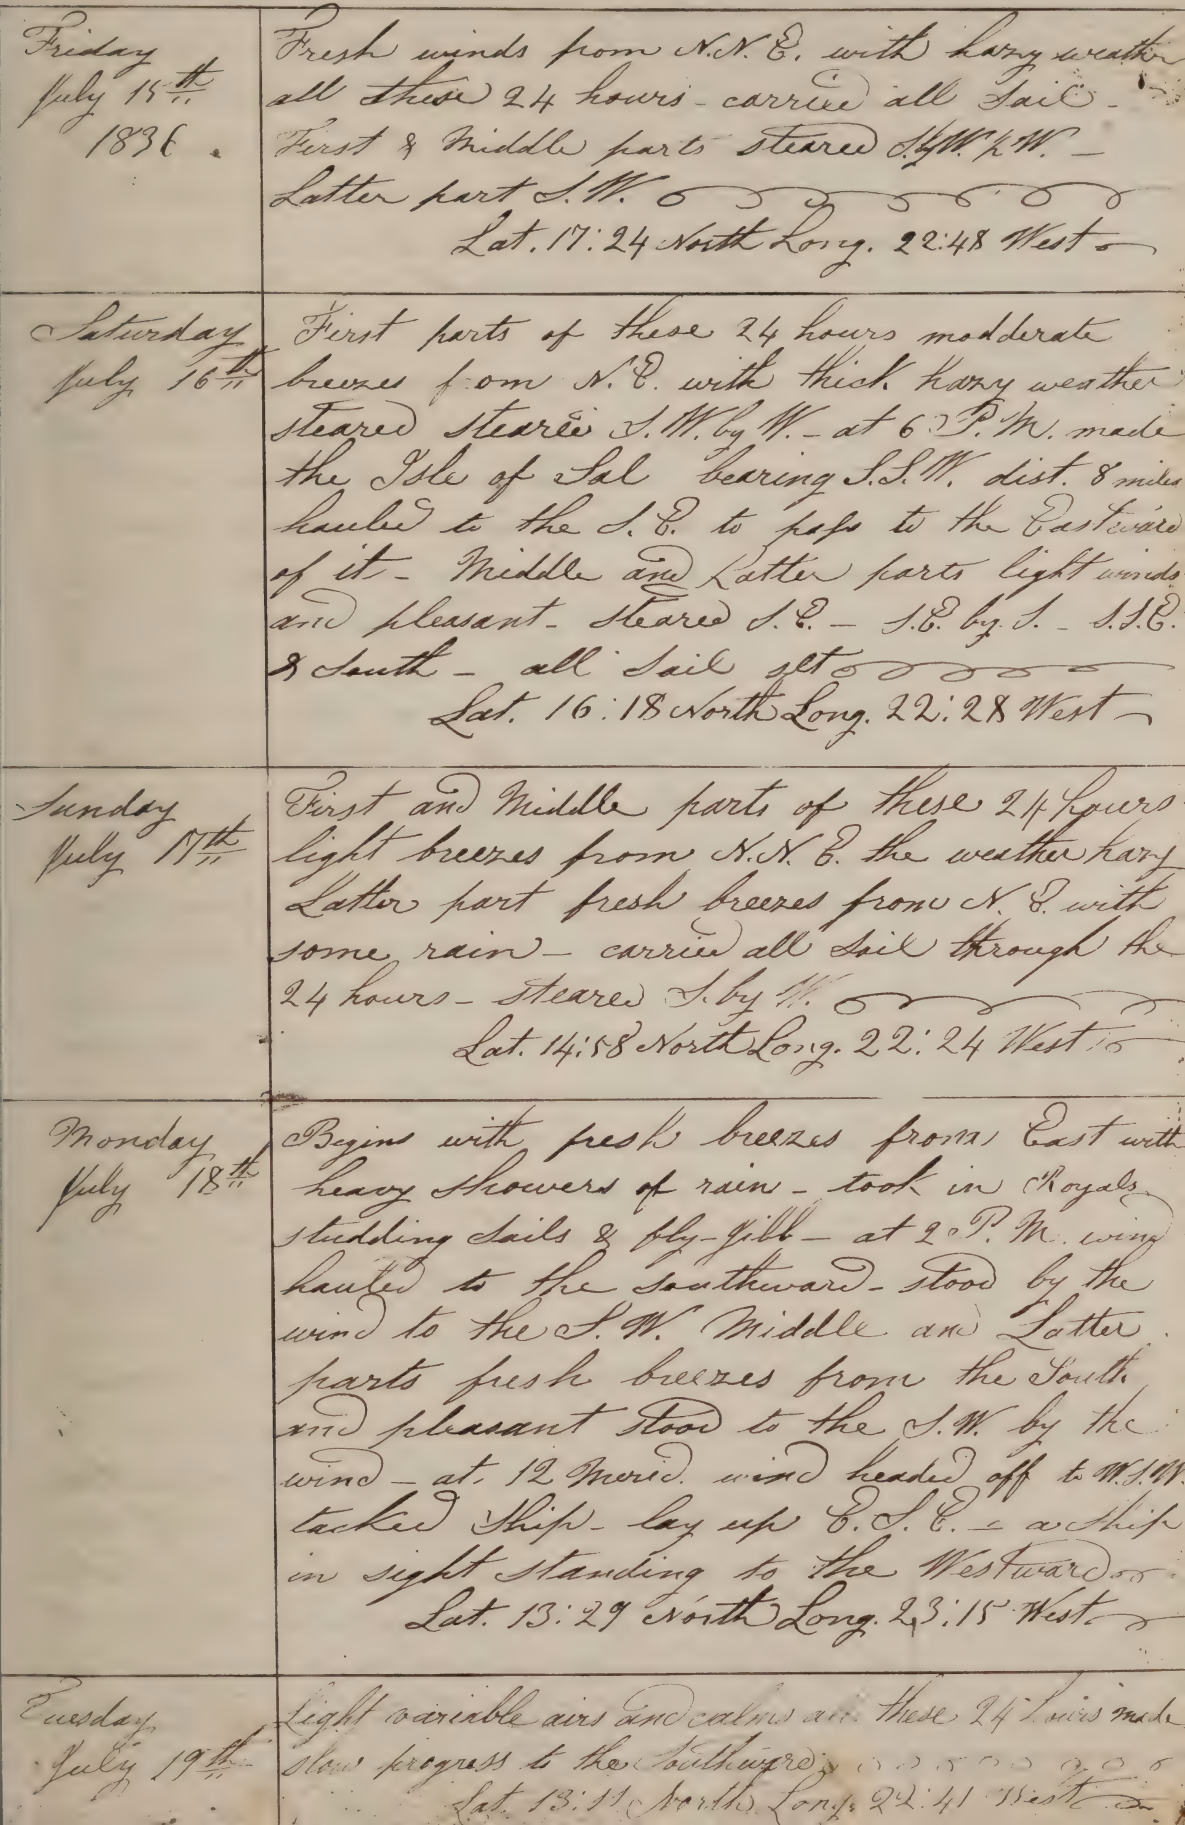 Friday
July 15th
1836.
Fresh winds from N.N.E. with hazy weather
all these 24 hours - carried all Sail -
First & Middle parts steared S.byW.½W. -
Latter part S.W.
Lat. 17:24 North Long. 22:48 West
Saturday
July 16th
First parts of these 24 hours modderate
breezes from N.E. with thick hazy weather
steared steared S.W. by W. - at 6 P.M. made
the Isle of Sal bearing S.S.W. dist. 8 miles
hauled to the S.E. to pass to the Eastward
of it - Middle and Latter parts light winds
and pleasant - steared S.E. - S.E. by. S. - S.S.E.
& South - all Sail set
Lat. 16:18 North Long. 22:28 West -
Sunday
July 17th
First and Middle parts of these 24 hours
light breezes from N.N.E. the weather hazy
Latter part fresh breezes from N.E. with
some rain - carried all Sail through the
24 hours - steared S. by W.
Lat. 14:58 North Long. 22:24 West
Monday
July 18th
Begins with fresh breezes from East with
heavy showers of rain - took in Royals
studding Sails & fly-gibb - at 2 P.M. wind
hauled to the southward - stood by the
wind to the S.W. Middle and Latter
parts fresh breezes from the South
and pleasant stood to the S.W. by the
wind - at 12 Merid. wind headed off to W.S.W.
tacked Ship - lay up E.S.E. - a ship
in sight standing to the Westward
Lat. 13:29 North Long. 23:15 West.
Tuesday
July 19th
Light variable airs and calms all these 24 hours made
slow progress to the Southward
Lat. 13:11 North Long. 22:41 West